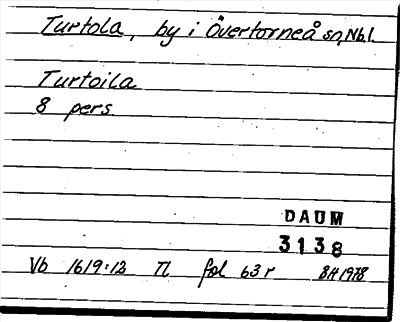 Turtola, by i Övertorneå sn, Nbl.
Turtoila
8 pers.
DAUM
3138
Vb 1619:12 Tl fol 63 r BH 1978